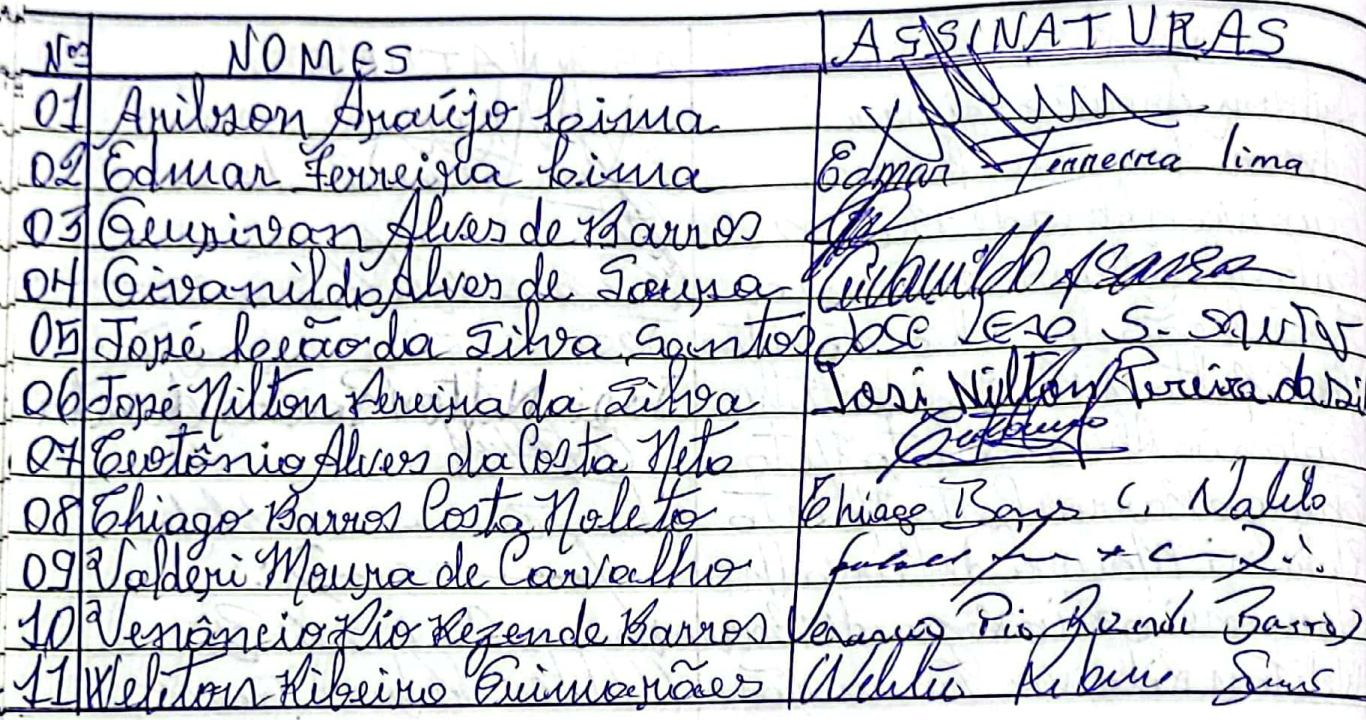 Nºs NOMES ASSINATURAS
01 Arilson Araújo Lima
02 Edmar Ferreira Lima Edmar Ferreira lima
03 Geurivan Alves de Barros
04 Givanildo Alves de Sousa
05 José Leão da Silva Santos José Leão S. Santos
06 José Nilton Pereira da Silva José Nilton Pereira da Sil
07 Teotônio Alves da Costa Neto
08 Thiago Barros Costa Noleto Thiago Barros C. Noleto
09 Valderi Moura de Carvalho
10 Venâncio Pio Rezende Barros Venanço Pio Rezende Barros
11 Weliton Ribeiro Guimarães